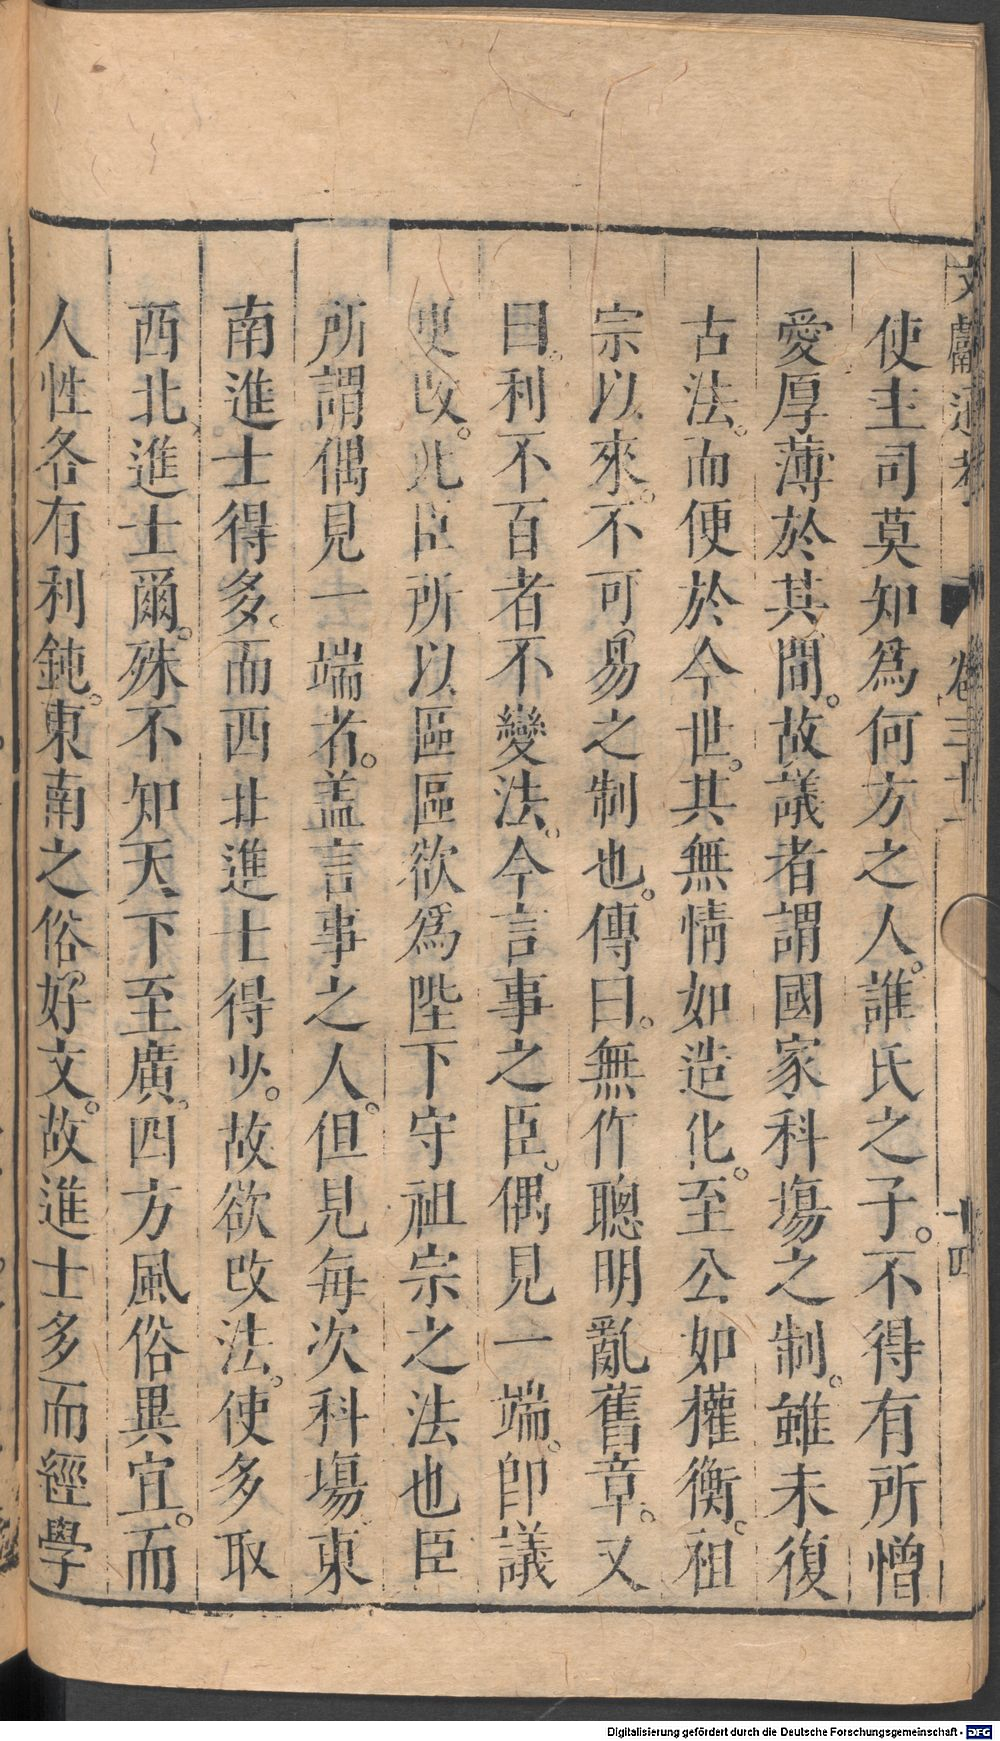 文獻通考 卷三十一 十四
使主司莫知爲何方之人。誰氏之子。不得有所憎
愛厚薄於其間。故議者謂國家科塲之制。雖未復
古法。而便於今世。其無情如造化。至公如權衡。祖
宗以來。不可易之制也。傳曰。無作聰明亂舊章。又
曰。利不百者不變法。今言事之臣。偶見一端。即議
更改。此臣所以區區欲爲陛下守祖宗之法也臣
所謂偶見一端者。盖言事之人。但見每次科塲東
南進士得多。而西北進士得少。故欲改法。使多取
西北進士爾。殊不知天下至廣。四方風俗異宜。而
人性各有利鈍。東南之俗好文。故進士多而經學
Digitalisierung gefördert durch die Deutsche Forschungsgemeinschaft - DFG